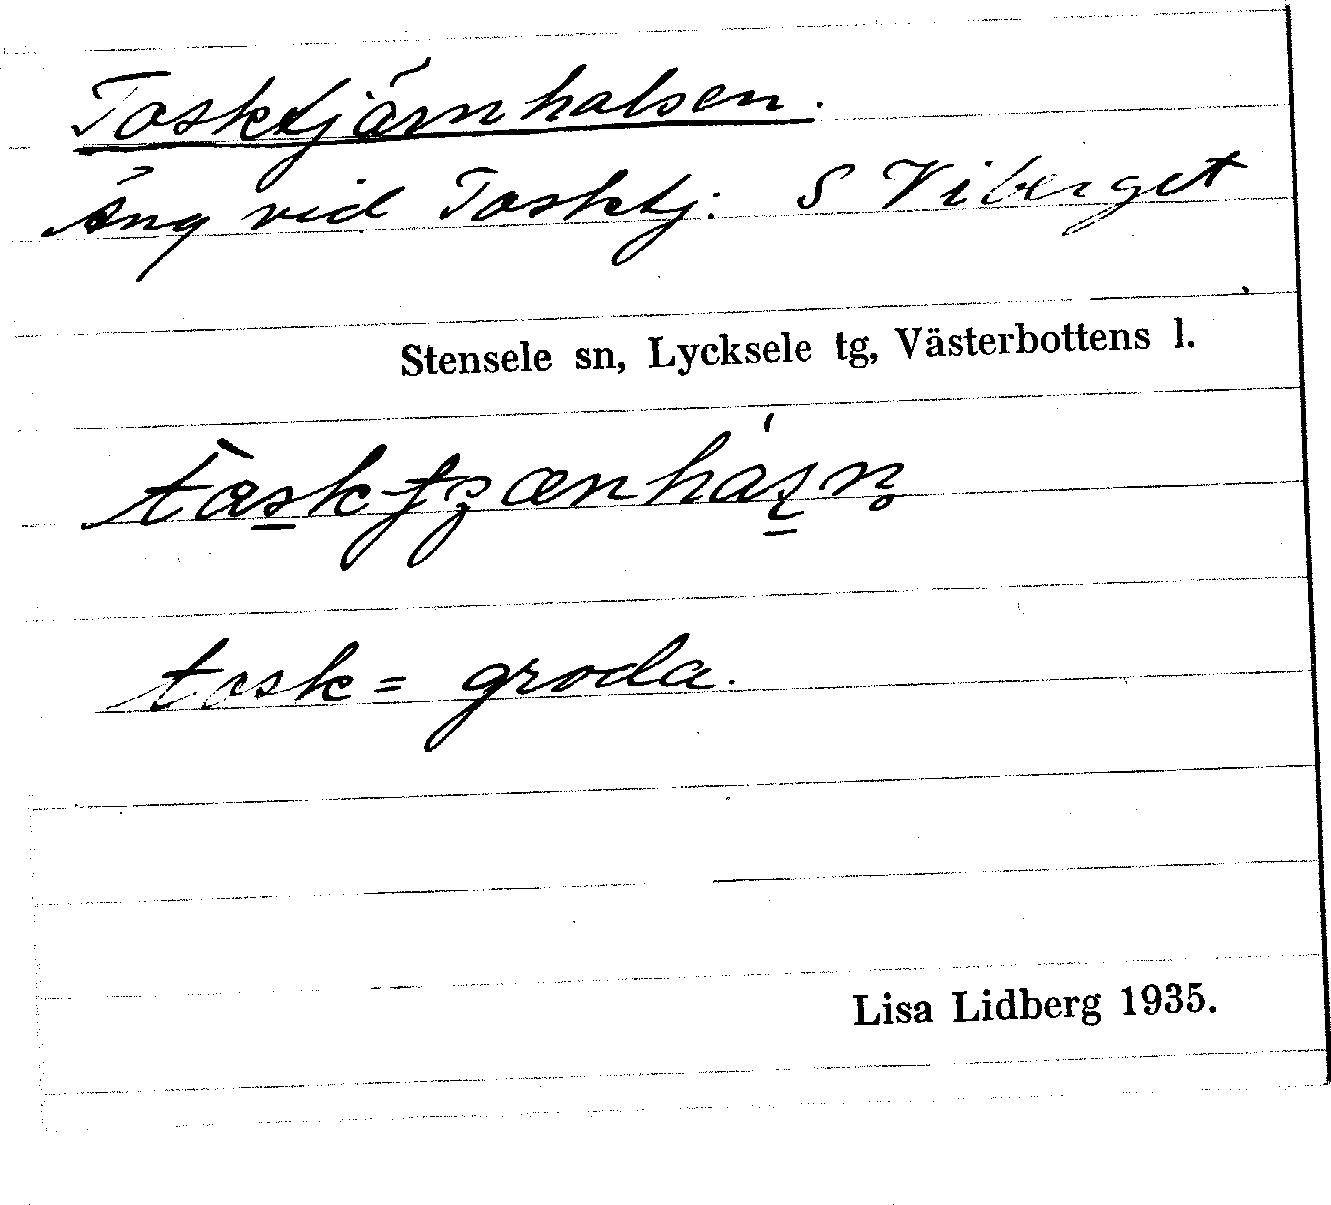 Tosktjärnhalsen.
Äng vid Tosktj. S Viberget
Stensele sn, Lycksele tg, Västerbottens l.
tosk = groda.
Lisa Lidberg 1935.